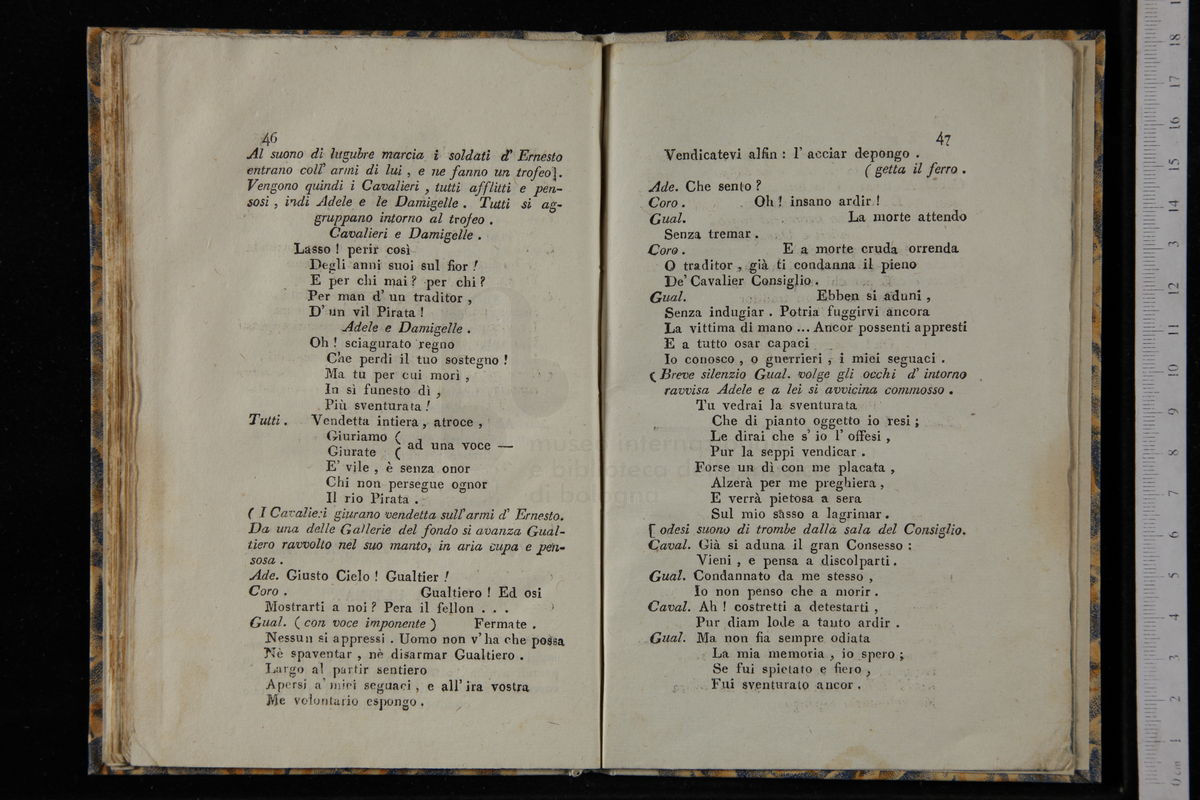 46
Al suono di lugubre marcia i soldati d' Ernesto
entrano coll' armi di lui , e ne fanno un trofeo].
Vengono quindi i Cavalieri , tutti afflitti e pen-
sosi , indi Adele e le Damigelle . Tutti si ag-
gruppano intorno al trofeo .
Cavalieri e Damigelle .
Lasso ! perir così
Degli anni suoi sul fior !
E per chi mai ? per chi ?
Per man d' un traditor ,
D' un vil Pirata !
Adele e Damigelle .
Oh ! sciagurato regno
Che perdi il tuo sostegno !
Ma tu per cui morì ,
In sì funesto dì ,
Più sventurata !
Tutti . Vendetta intiera , atroce ,
Giuriamo (
Giurate ( ad una voce —
E' vile , è senza onor
Chi non persegue ognor
Il rio Pirata .
( I Cavalieri giurano vendetta sull' armi d' Ernesto.
Da una delle Gallerie del fondo si avanza Gual-
tiero ravvolto nel suo manto, in aria cupa e pen-
sosa .
Ade. Giusto Cielo ! Gualtier !
Coro . Gualtiero ! Ed osi
Mostrarti a noi ? Pera il fellon . . .
Gual. ( con voce imponente ) Fermate .
Nessun si appressi . Uomo non v' ha che possa
Nè spaventar , nè disarmar Gualtiero .
Largo al partir sentiero
Apersi a' miei seguaci , e all' ira vostra
Me volontario espongo .
47
Vendicatevi alfin : l' acciar depongo .
( getta il ferro .
Ade. Che sento ?
Coro . Oh ! insano ardir !
Gual. La morte attendo
Senza tremar .
Coro . E a morte cruda orrenda
O traditor , già ti condanna il pieno
De' Cavalier Consiglio .
Gual. Ebben si aduni ,
Senza indugiar . Potria fuggirvi ancora
La vittima di mano ... Ancor possenti appresti
E a tutto osar capaci
Io conosco , o guerrieri , i miei seguaci .
( Breve silenzio Gual. volge gli occhi d' intorno
ravvisa Adele e a lei si avvicina commosso .
Tu vedrai la sventurata
Che di pianto oggetto io resi ;
Le dirai che s' io l' offesi ,
Pur la seppi vendicar .
Forse un dì con me placata ,
Alzerà per me preghiera ,
E verrà pietosa a sera
Sul mio sasso a lagrimar .
[ odesi suono di trombe dalla sala del Consiglio.
Caval. Già si aduna il gran Consesso :
Vieni , e pensa a discolparti .
Gual. Condannato da me stesso ,
Io non penso che a morir .
Caval. Ah ! costretti a detestarti ,
Pur diam lode a tanto ardir .
Gual. Ma non fia sempre odiata
La mia memoria , io spero ;
Se fui spietato e fiero ,
Fui sventurato ancor .